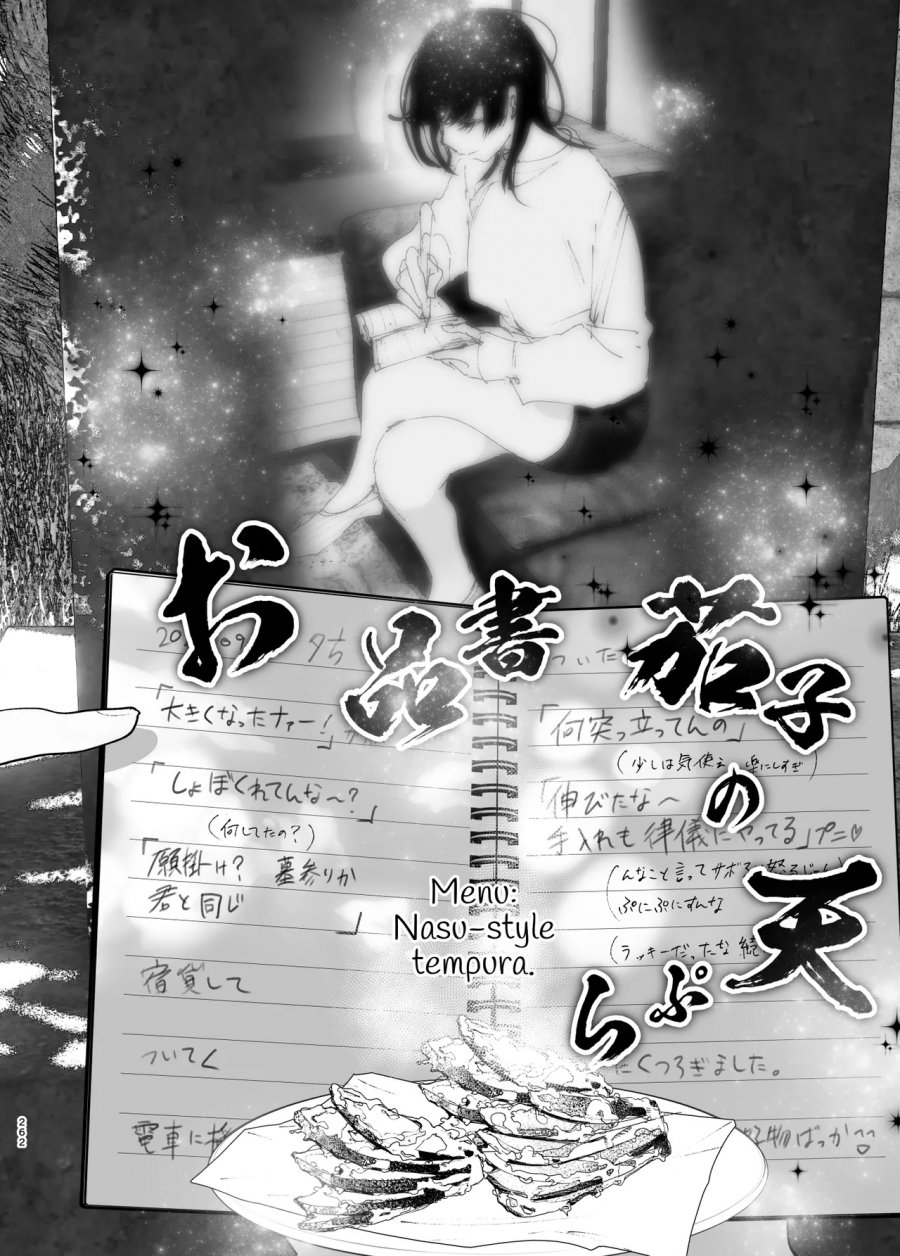 お品書
茄子の天ぷら
Menu:
Nasu-style
tempura.
「大きくなったナァー!」
「しょぼくれてんな〜?」
(何してたの?)
「願掛け? 墓参りか
君と同じ
」
宿貸して
ついてく
電車に
「何突っ立ってんの」
(少しは気使え 楽にしすぎ)
「伸びたな〜
手入れも律儀にやってる」プニ♡
(んなこと言ってサボる
ぷにぷにすんな
(ラッキーだったな 続
くつろぎました。
物ばっか
262